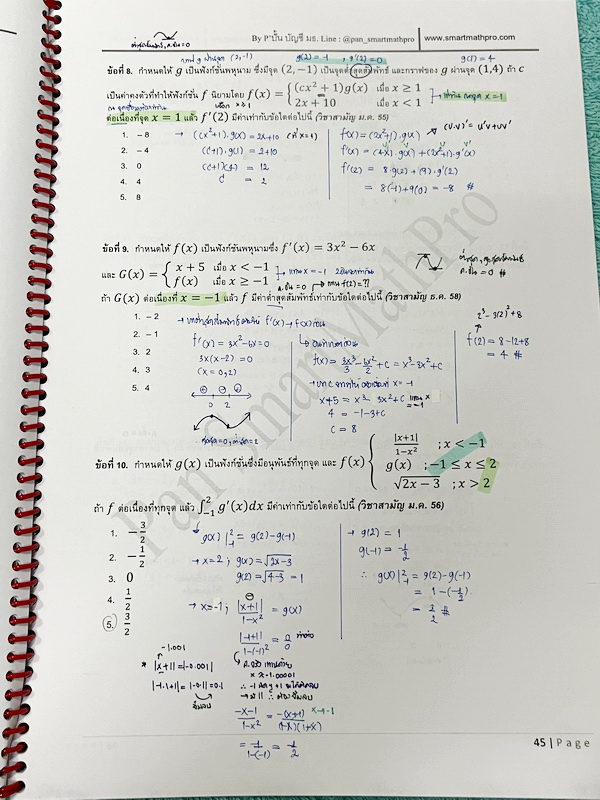 By P'ปั้น บัญชี มธ. Line : @pan_smartmathpro | www.smartmathpro.com
g(2) = -1 , g'(2) = 0
g(1) = 4
ข้อที่ 8. กำหนดให้ g เป็นฟังก์ชันพหุนาม ซึ่งมีจุด (2, −1) เป็นจุดต่ำสุดสัมพัทธ์ และกราฟของ g ผ่านจุด (1,4) ถ้า c
เป็นค่าคงตัวที่ทำให้ฟังก์ชัน f นิยามโดย f(x) = { (cx² + 1)g(x) เมื่อ x ≥ 1
2x + 10 เมื่อ x < 1
ต่อเนื่องที่จุด x = 1 แล้ว f'(2) มีค่าเท่ากับข้อใดต่อไปนี้ (วิชาสามัญ ม.ค. 55)
1. − 8
2. − 4
3. 0
4. 4
5. 8
→ (cx²+1)·g(x) = 2x+10 (ที่ x=1)
(c+1)·g(1) = 2+10
(c+1)(4) = 12
c = 2
f(x) = (2x²+1)·g(x)
(u·v)' = u'v+uv'
f'(x) = (4x)·g(x) + (2x²+1)·g'(x)
f'(2) = 8·g(2) + (9)·g'(2)
= 8(-1)+9(0) = -8 #
ข้อที่ 9. กำหนดให้ f(x) เป็นฟังก์ชันพหุนามซึ่ง f'(x) = 3x² − 6x
และ G(x) = { x + 5 เมื่อ x < −1
f(x) เมื่อ x ≥ −1
ถ้า G(x) ต่อเนื่องที่ x = −1 แล้ว f มีค่าต่ำสุดสัมพัทธ์เท่ากับข้อใดต่อไปนี้ (วิชาสามัญ ธ.ค. 58)
1. − 2
2. − 1
3. 2
4. 3
5. 4
f'(x) = 3x²-6x = 0
3x(x-2) = 0
(x = 0,2)
0 2
f(x) = 3x³/3 - 6x²/2 + C = x³-3x²+C
x+5 = x³ - 3x²+C
4 = -1-3+C
C = 8
2³-3(2)²+8
f(2) = 8-12+8
= 4 #
ข้อที่ 10. กำหนดให้ g(x) เป็นฟังก์ชันซึ่งมีอนุพันธ์ที่ทุกจุด และ f(x) { |x+1|/1−x² ; x < −1
g(x) ; −1 ≤ x ≤ 2
√2x − 3 ; x > 2
ถ้า f ต่อเนื่องที่ทุกจุด แล้ว ∫₋₁² g'(x)dx มีค่าเท่ากับข้อใดต่อไปนี้ (วิชาสามัญ ม.ค. 56)
1. − 3/2
2. − 1/2
3. 0
4. 1/2
5. 3/2
g(x)|₋₁² = g(2)-g(-1)
→ x=2 ; g(x) = √2x-3
g(2) = √4-3 = 1
→ x=-1 ; |x+1|/1-x² = g(x)
|-1+1|/1-(-1)² = 0/0
-1.001
* |x+1| = |-0.001|
|-1.1+1| = |-0.1| = 0.1
-x-1/1-x² = -(x+1)/(1-x)(1+x) x→-1
= -1/1-(-1) = -1/2
→ g(2) = 1
g(-1) = -1/2
∴ g(x)|₋₁² = g(2)-g(-1)
= 1-(-1/2)
= 3/2 #
Pan SmartMathPro
45 | Page